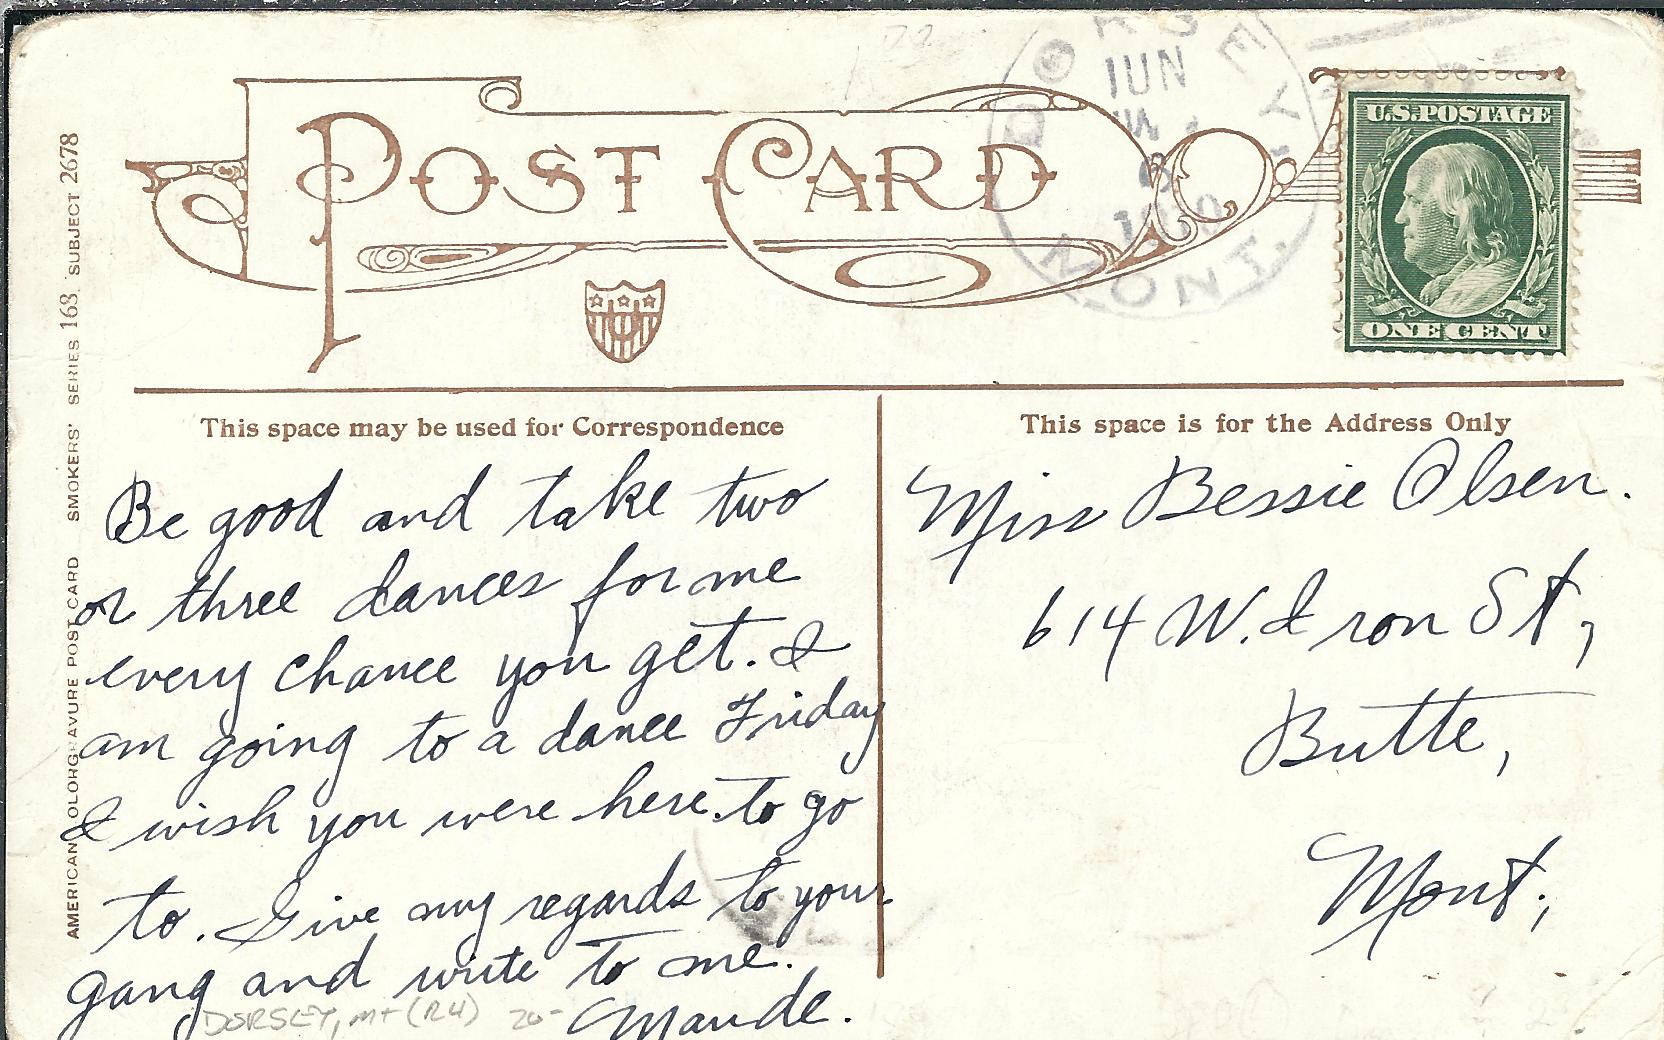 DORSEY
JUN
6
1910
MONT.
POST CARD
U.S. POSTAGE
ONE CENT
This space may be used for Correspondence
This space is for the Address Only
AMERICAN COLORGRAVURE POST CARD SMOKERS' SERIES 168. SUBJECT 2678
Be good and take two
or three dances for me
every chance you get. I
am going to a dance Friday
I wish you were here to go
to. Give my regards to your
gang and write to me.
Maude.
Miss Bessie Olsen.
614 W. Iron St,
Butte,
Mont,
DORSEY, MT (R4) 20-